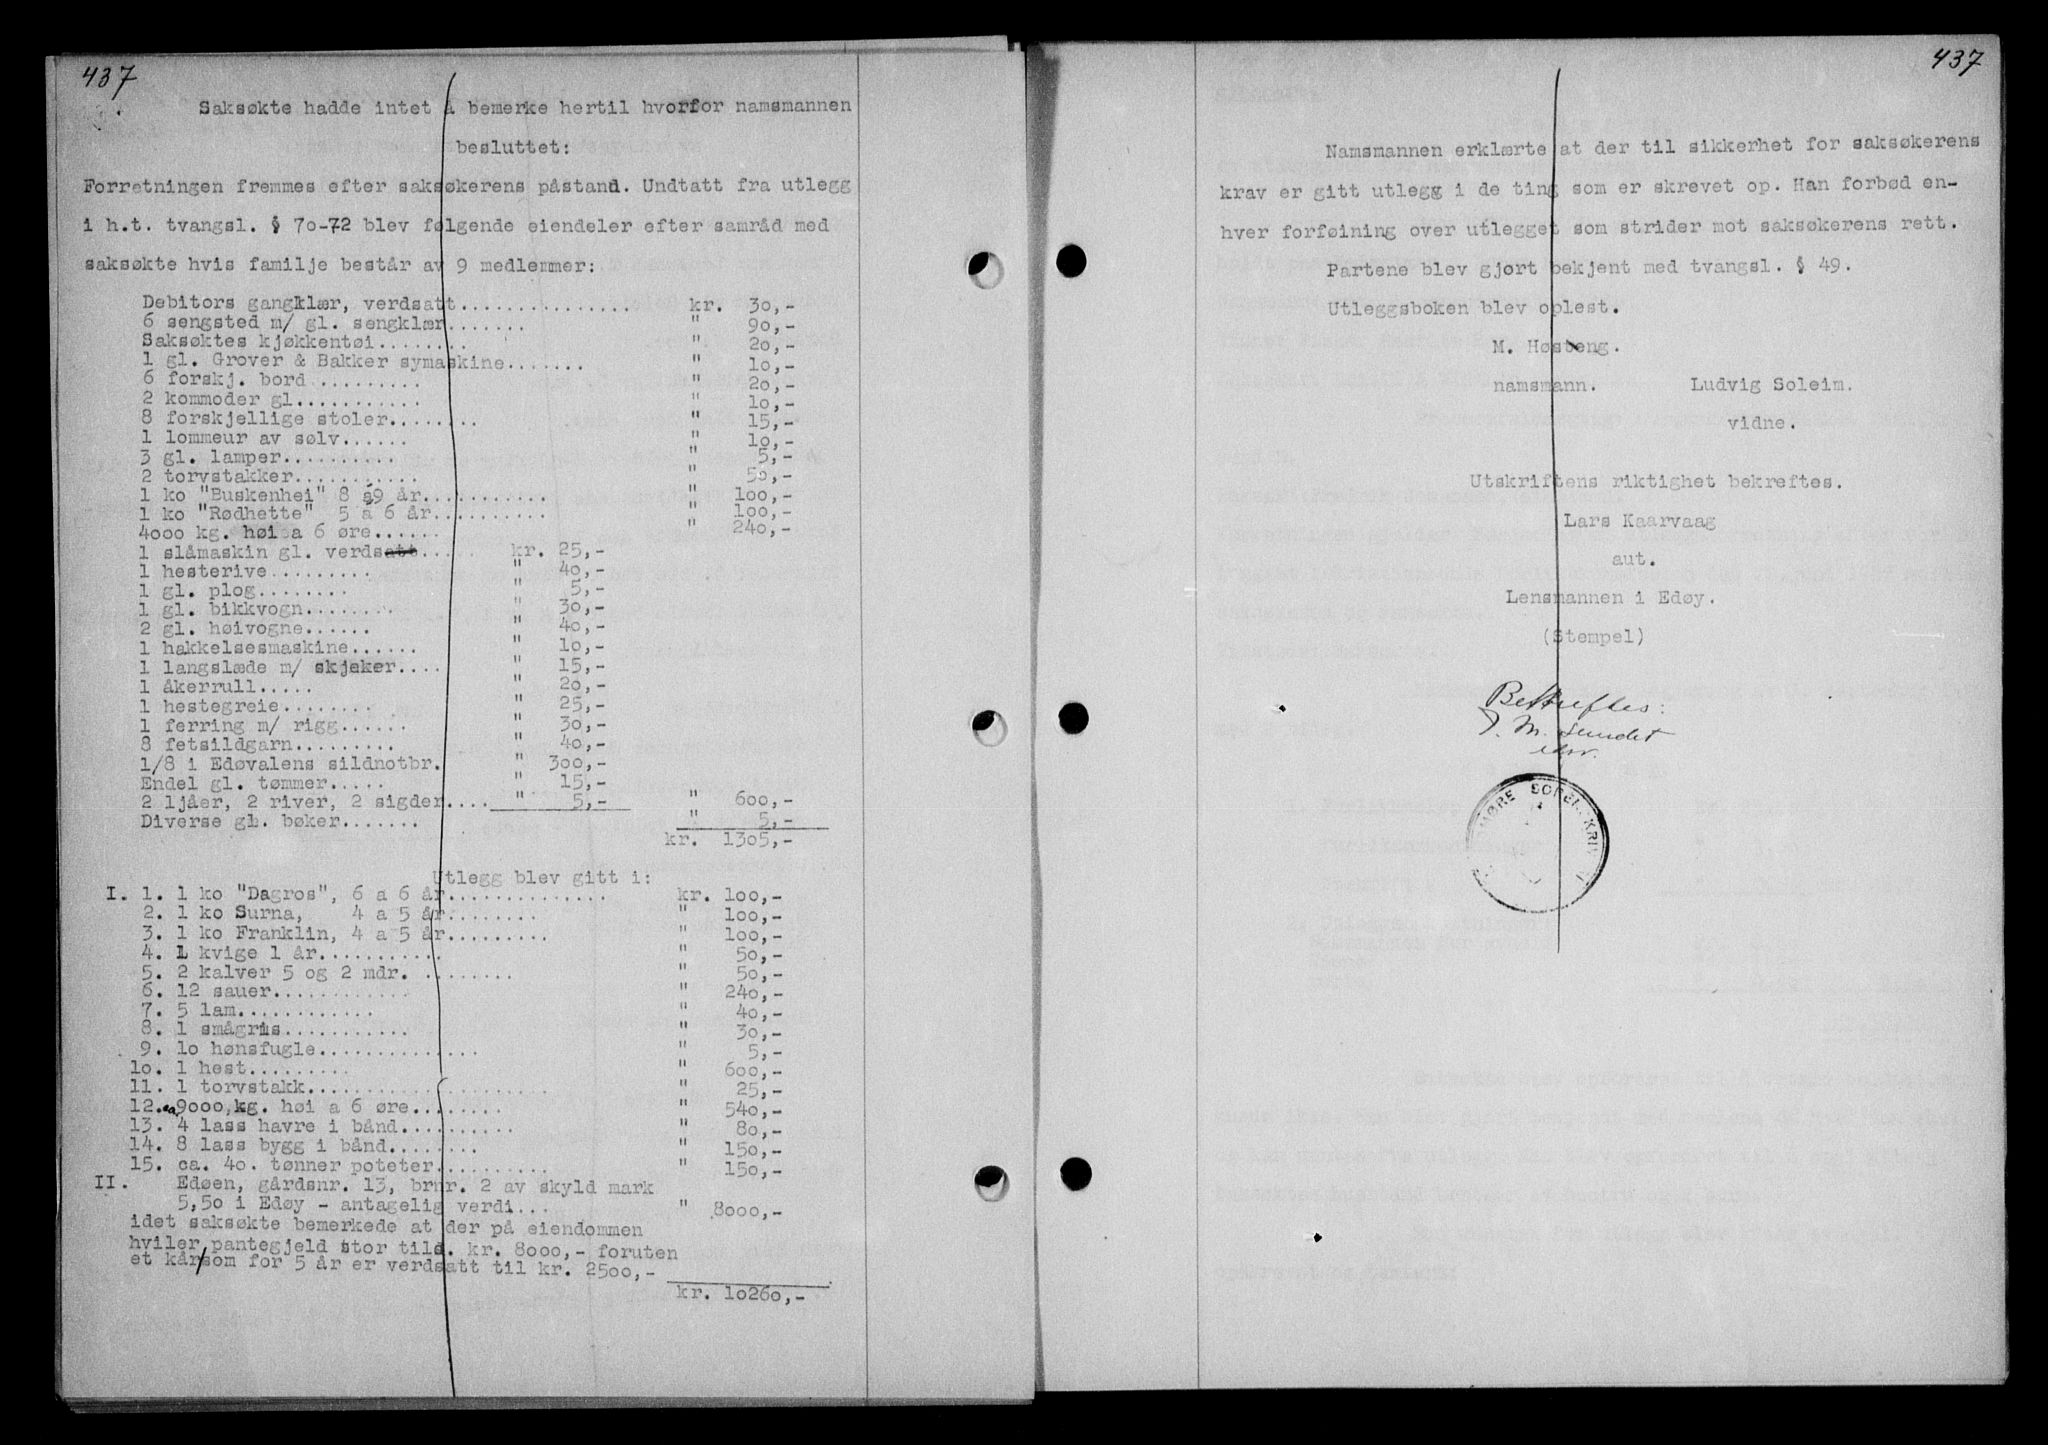 437
Saksøkte hadde intet å bemerke hertil hvorfor namsmannen
besluttet:
Forretningen fremmes efter saksøkerens påstand. Undtatt fra utlegg
i h.t. tvangsl. § 70-72 blev følgende eiendeler efter samråd med
saksøkte hvis familje består av 9 medlemmer:
Debitors gangklær, verdsatt................ kr. 30,-
6 sengsted m/ gl. sengklær....... " 90,-
Saksøktes kjøkkentøi........ " 20,-
1 gl. Grover & Bakker symaskine....... " 10,-
6 forskj. bord .......... " 20,-
2 kommoder gl............ " 10,-
8 forskjellige stoler........ " 15,-
1 lommeur av sølv...... " 10,-
3 gl. lamper.......... " 5,-
2 torvstakker............ " 50,-
1 ko "Buskenhei" 8 á9 år............ " 100,-
1 ko "Rødhette" 5 á 6 år........... " 100,-
4000 kg. høi a 6 øre...... " 240,-
1 slåmaskin gl. verdsatt..... kr. 25,-
1 hesterive......... " 40,-
1 gl. plog........ " 5,-
1 gl. bikkvogn........ " 30,-
2 gl. høivogne...... " 40,-
1 hakkelsesmaskine...... " 10,-
1 langslæde m/ skjæker.... " 15,-
1 åkerrull..... " 20,-
1 hestegreie........ " 25,-
1 ferring m/ rigg...... " 30,-
8 fetsildgarn......... " 40,-
1/8 i Edøvalens sildnotbr. " 300,-
Endel gl. tømmer..... " 15,-
2 ljåer, 2 river, 2 sigder.... " 5,- " 600,-
Diverse gl. bøker....... " 5,-
kr. 1305,-
Utlegg blev gitt i:
I. 1. 1 ko "Dagros", 6 a 6 år............... kr. 100,-
2. 1 ko Surna, 4 a 5 år......... " 100,-
3. 1 ko Franklin, 4 a 5 år.......... " 100,-
4. 1 kvige 1 år............ " 50,-
5. 2 kalver 5 og 2 mdr. ......... " 50,-
6. 12 sauer............. " 240,-
7. 5 lam............. " 40,-
8. 1 smågris............ " 30,-
9. 10 hønsfugle............... " 5,-
10. 1 hest.......... " 600,-
11. 1 torvstakk....................... " 25,-
12. ca 9000 kg. høi a 6 øre........ " 540,-
13. 4 lass havre i bånd.......... " 80,-
14. 8 lass bygg i bånd........ " 150,-
15. ca. 40. tønner poteter.......... " 150,-
II. Edøen, gårdsnr. 13, brnr. 2 av skyld mark
5,50 i Edøy - antagelig verdi... " 8000,-
idet saksøkte bemerkede at der på eiendommen
hviler pantegjeld stor tils. kr. 8000,- foruten
et kår/som for 5 år er verdsatt til kr. 2500,-
kr. 10260,-
437
Namsmannen erklærte at der til sikkerhet for saksøkerens
krav er gitt utlegg i de ting som er skrevet op. Han forbød en-
hver forføining over utlegget som strider mot saksøkerens rett.
Partene blev gjort bekjent med tvangsl. § 49.
Utleggsboken blev oplest.
M. Høsteng.
namsmann. Ludvig Soleim.
vidne.
Utskriftens riktighet bekreftes.
Lars Kaarvaag
aut.
Lensmannen i Edøy.
(Stempel)
Bekreftes:
J. M. Sundet
edsv.
MØRE SOREN KRI